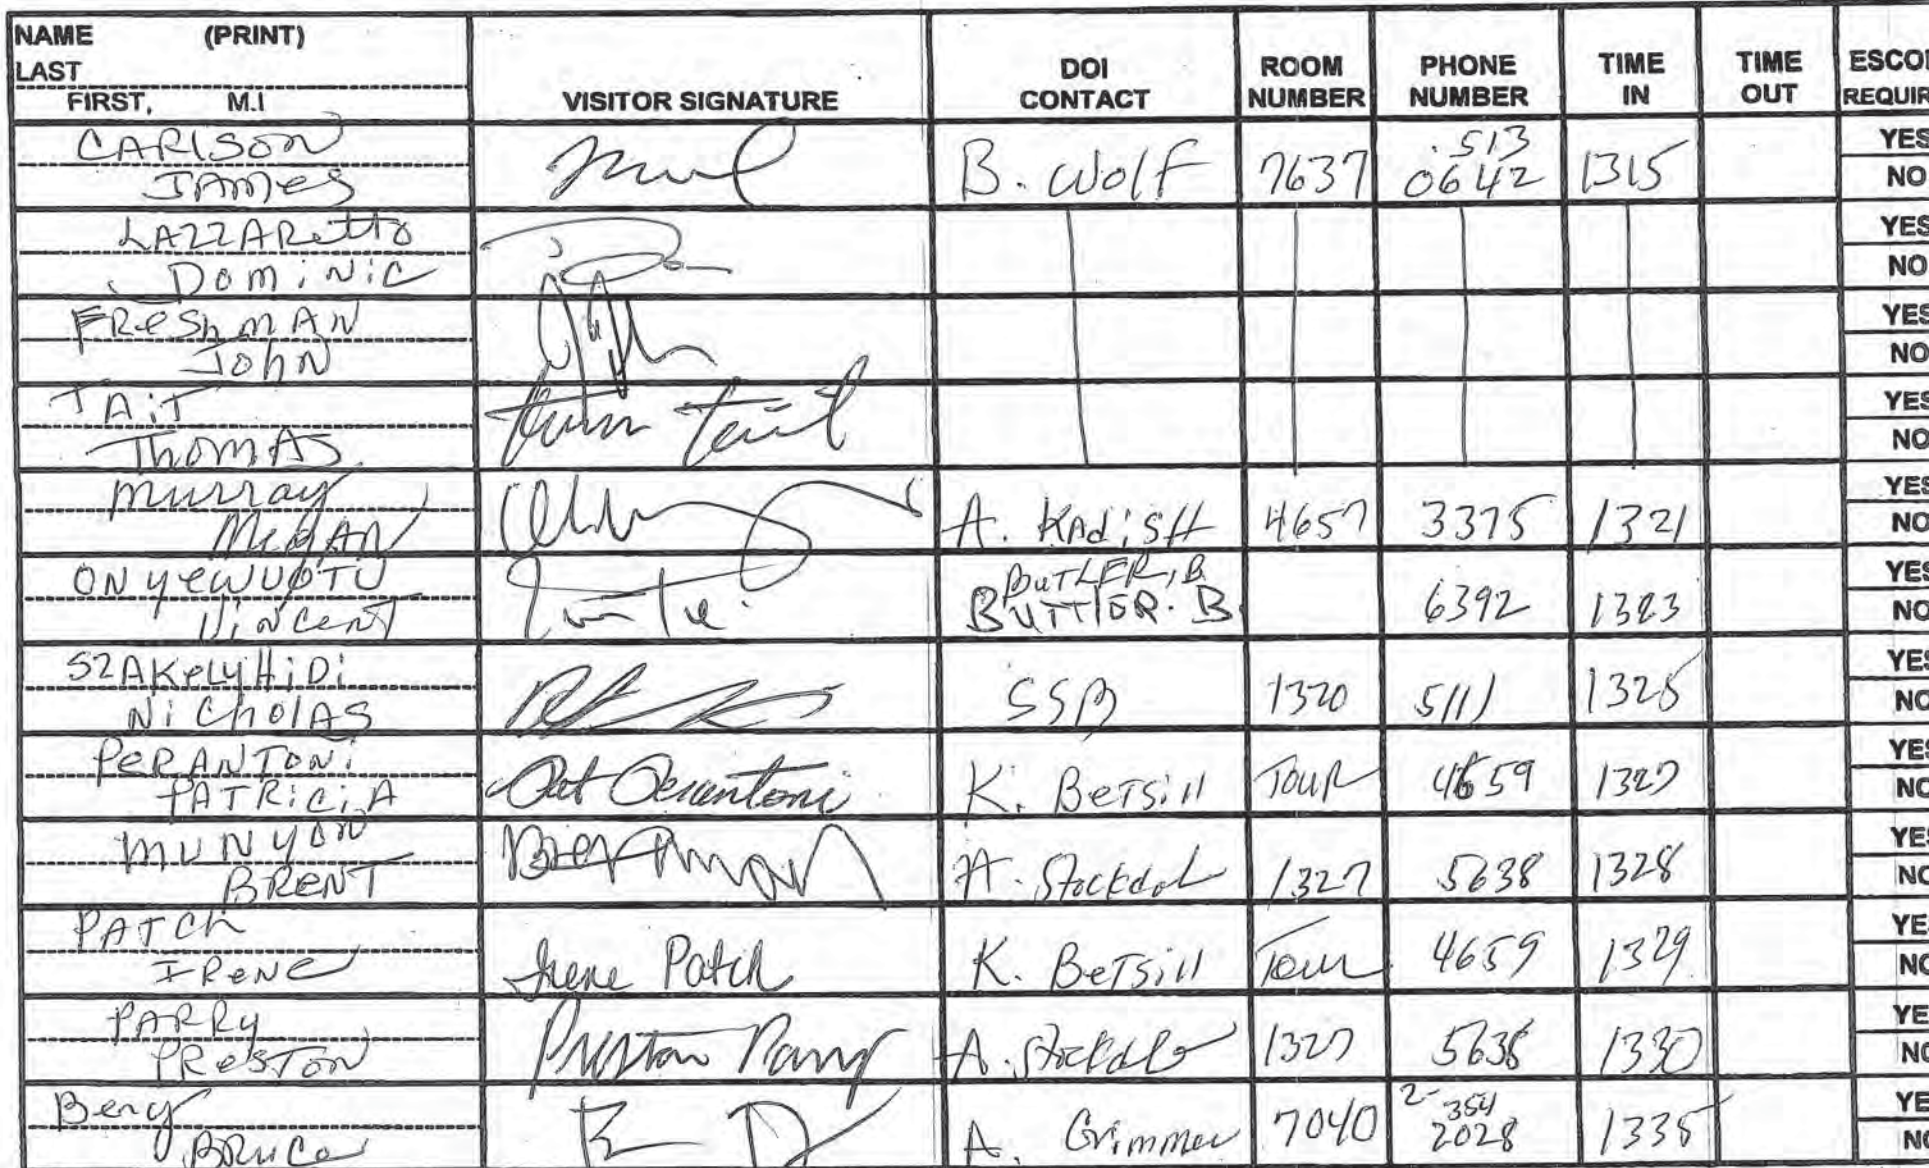 NAME (PRINT)
LAST
FIRST, M.I
VISITOR SIGNATURE
DOI
CONTACT
ROOM
NUMBER
PHONE
NUMBER
TIME
IN
TIME
OUT
ESCO
REQUIR
CARLSON
JAMES
B. Wolf 7637 513
0642 1315
YES
NO
LAZZARetto
DOMiNiC
YES
NO
FReShMAN
John
YES
NO
TAiT
ThomAS
YES
NO
Murray
MeGAN
A. KAdiSH 4657 3375 1321
YES
NO
ONyeWUOTU
Vincent
BUTLER, B
BUTTIOR. B
6392 1323
YES
NO
SZAKelyHiDi
NiCholAS
SSB 1320 5111 1325
YES
NO
PeRANTONi
PATRiCiA
Pat Perantoni
K. BeTSill Tour 4659 1327
YES
NO
MUNYON
BRENT
A. Stockdal 1327 5638 1328
YES
NO
PATCh
IReNe
Irene Patch
K. BeTSill Tour 4659 1329
YE
NO
PARRy
PReSTON
Preston Parry
A. Stockdale 1327 5638 1330
YE
NO
Berg
BRuCe
A. Grimmer 7040 2-354
2028 1335
YE
NO